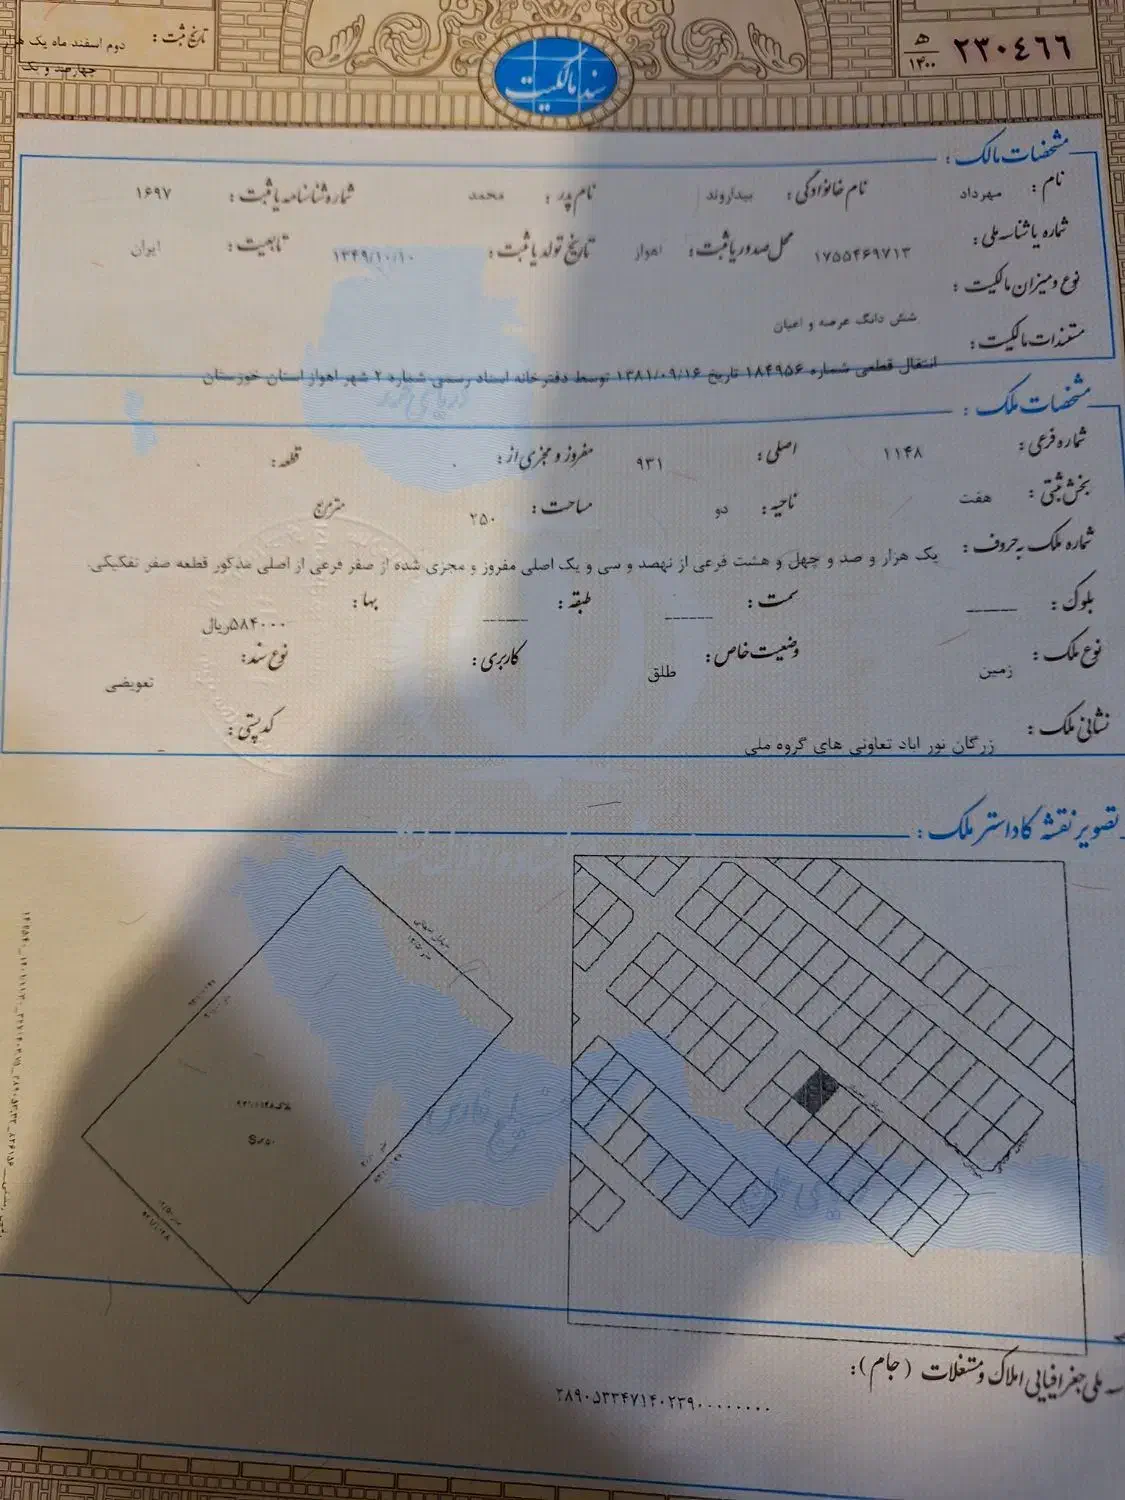 ۲۳۰۴۶۶ ه‍ ۱۴۰۰
تاریخ ثبت : دوم اسفند ماه یک هزار
چهارصد و یک
سند مالکیت
مشخصات مالک :
نام : مهرداد نام خانوادگی : بیداروند نام پدر : محمد شماره شناسنامه یا ثبت : ۱۶۹۷
شماره یا شناسه ملی : ۱۷۵۵۴۶۹۷۱۳ محل صدور یا ثبت : اهواز تاریخ تولد یا ثبت : ۱۳۴۹/۱۰/۱۰ تابعیت : ایران
نوع و میزان مالکیت :
شش دانگ عرصه و اعیان
مستندات مالکیت :
انتقال قطعی شماره ۱۸۴۹۵۶ تاریخ ۱۳۸۱/۰۹/۱۶ توسط دفترخانه اسناد رسمی شماره ۲ شهر اهواز استان خوزستان
مشخصات ملک :
شماره فرعی : ۱۱۴۸ اصلی : ۹۳۱ مفروز و مجزی از : ۰ قطعه : ۰
بخش ثبتی : هفت ناحیه : دو مساحت : ۲۵۰ مترمربع
شماره ملک به حروف : یک هزار و صد و چهل و هشت فرعی از نهصد و سی و یک اصلی مفروز و مجزی شده از صفر فرعی از اصلی مذکور قطعه صفر تفکیکی.
بلوک : ------ سمت : ------ طبقه : ------ بها : ۵۸۴۰۰۰ریال
نوع ملک : زمین وضعیت خاص : طلق کاربری : نوع سند : تعویضی
نشانی ملک : زرگان نور اباد تعاونی های گروه ملی کدپستی : -
تصویر نقشه کاداستر ملک :
دریای خزر
خلیج فارس
ملی جغرافیایی املاک و مستغلات (جام) :
۲۸۹۰۵۳۳۴۷۱۴۰۲۳۹۰۰۰۰۰۰۰۰۰